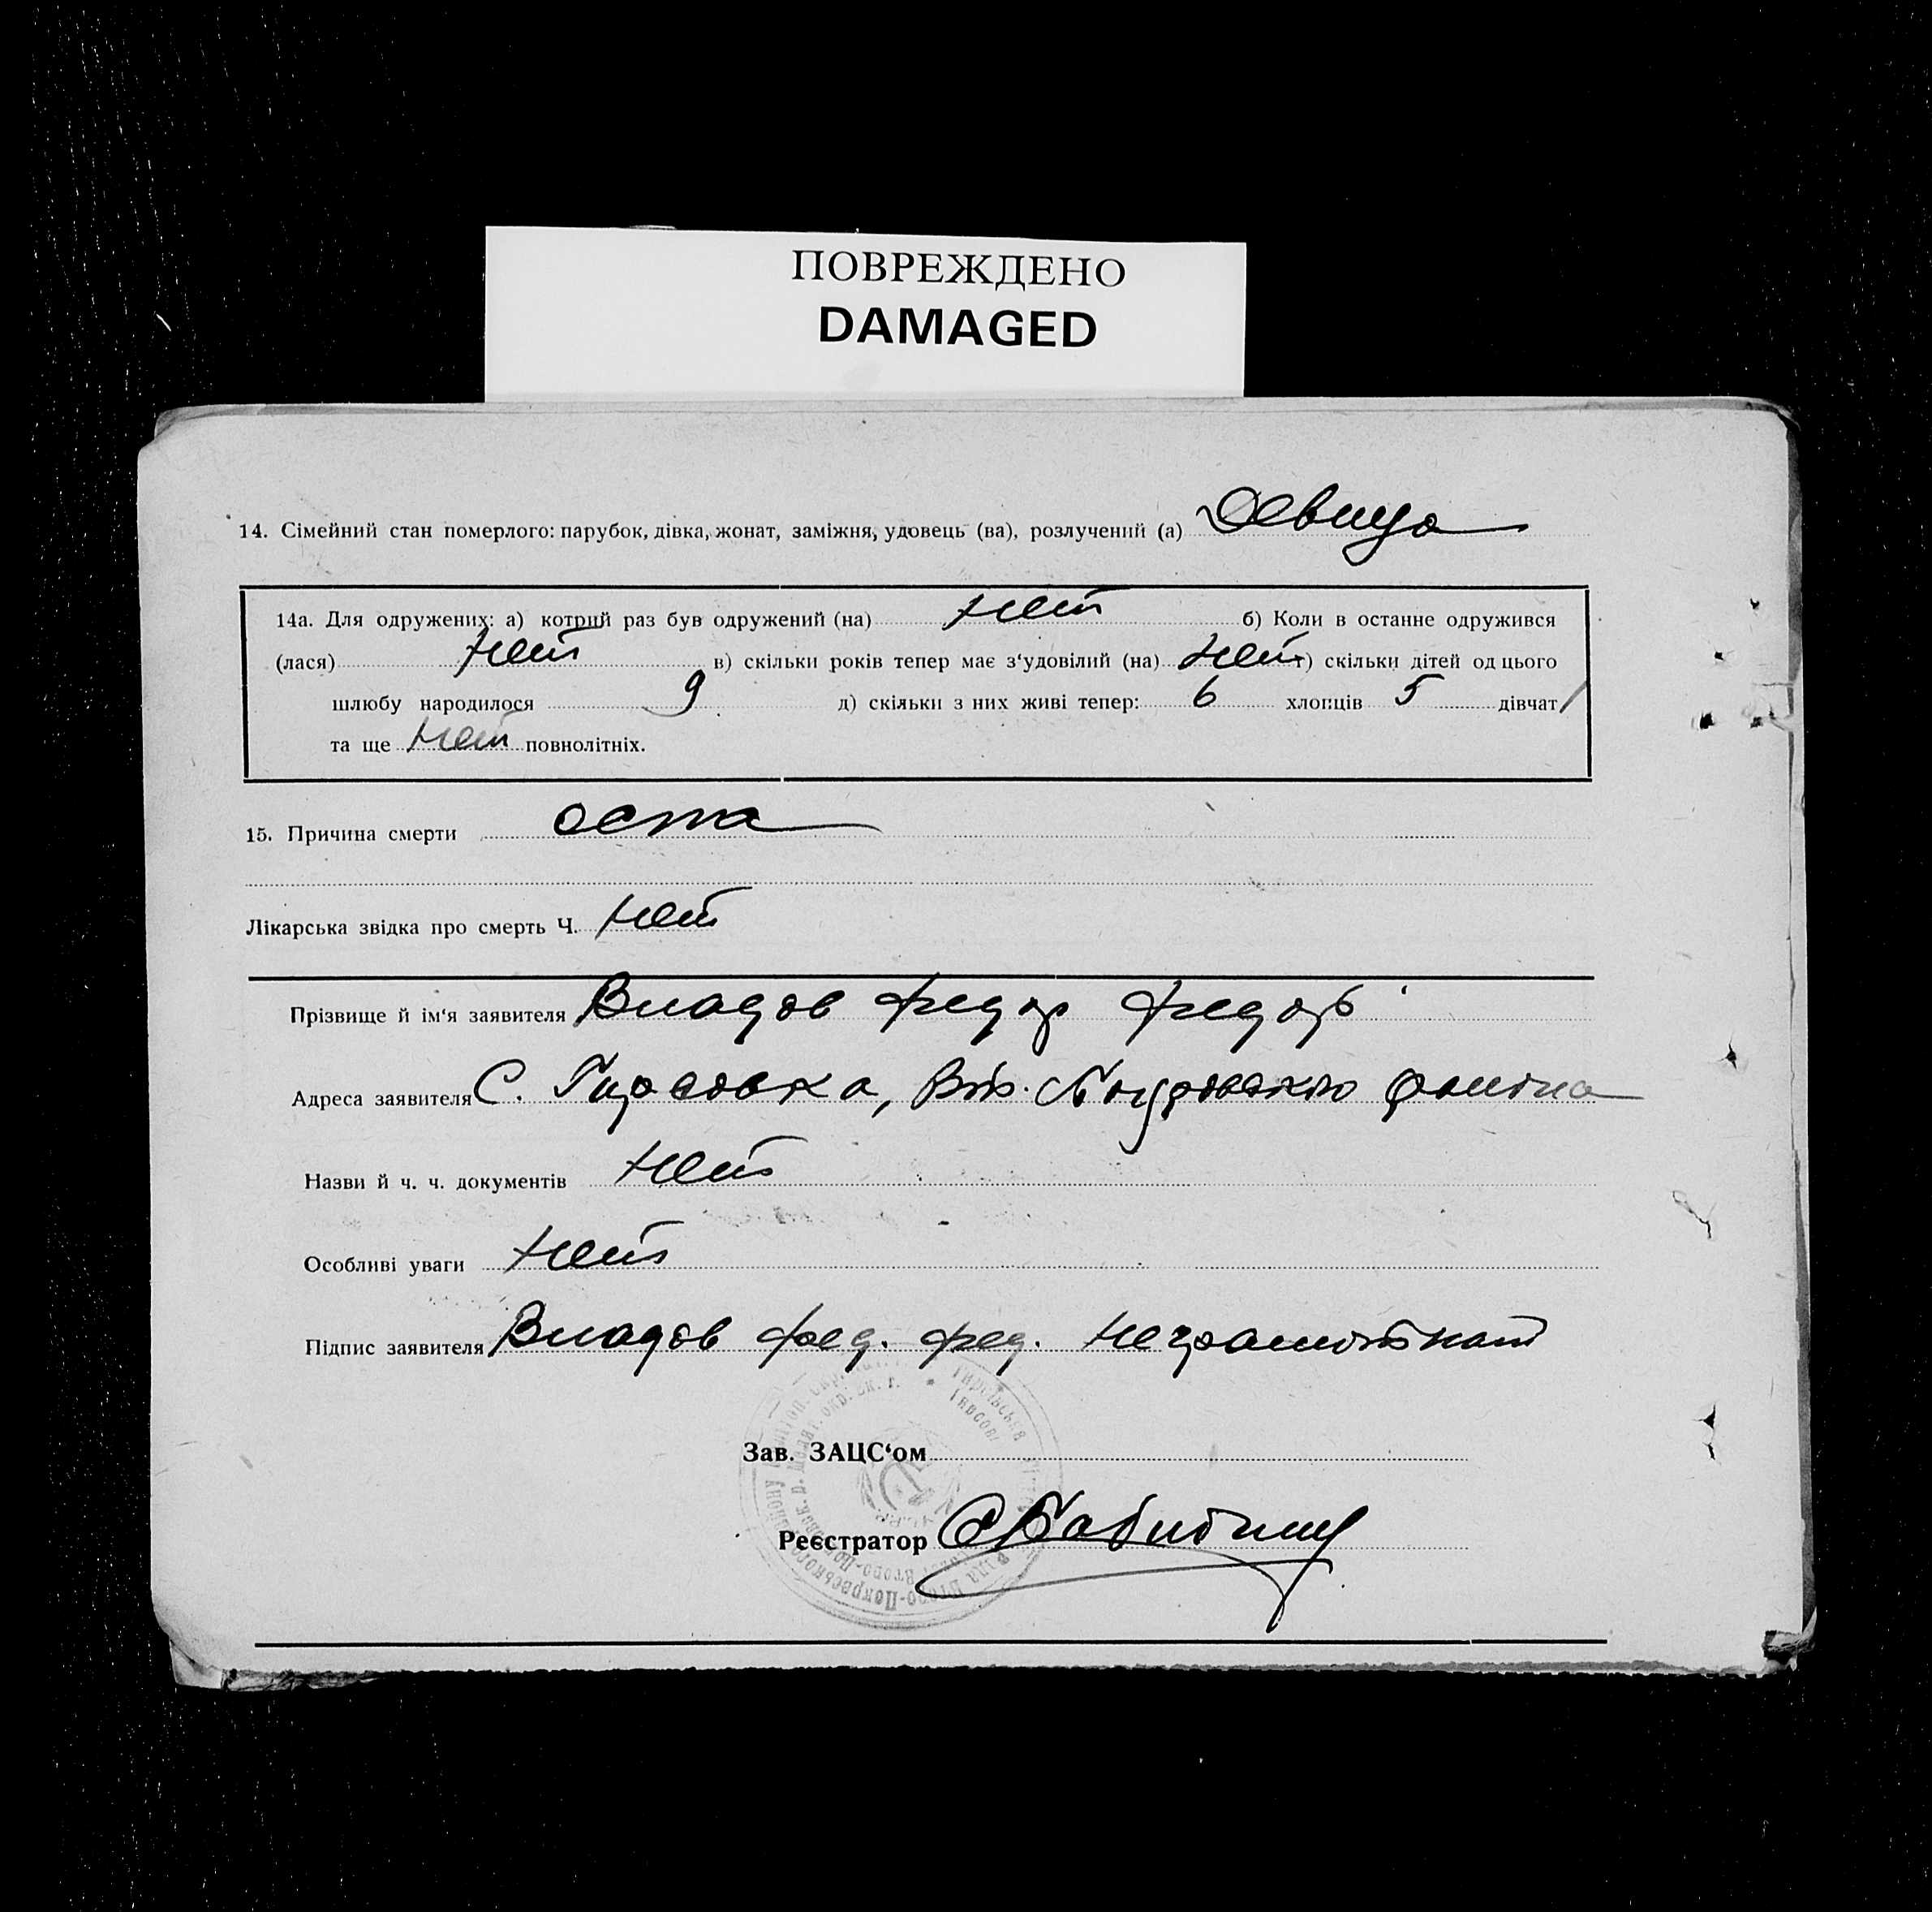 ПОВРЕЖДЕНО
DAMAGED
14. Сімейний стан померлого: парубок, дівка, жонат, заміжня, удовець (ва), розлучений (а) Девица
14а. Для одружених: а) котрий раз був одружений (на) нет б) Коли в останне одружився
(лася) нет в) скільки років тепер має з‘удовілий (на) нет г) скільки дітей од цього
шлюбу народилося 9 д) скільки з них живі тепер: 6 хлопців 5 дівчат 1
та ще нет повнолітніх.
15. Причина смерти оспа
Лікарська звідка про смерть Ч. нет
Прізвище й ім‘я заявителя Владов Федор Федор
Адреса заявителя С. Тирасовка,
Назви й ч. ч. документів нет
Особливі уваги нет
Підпис заявителя Владов Фед. Фед. неграмотная
Зав. ЗАЦС‘ом
Реєстратор